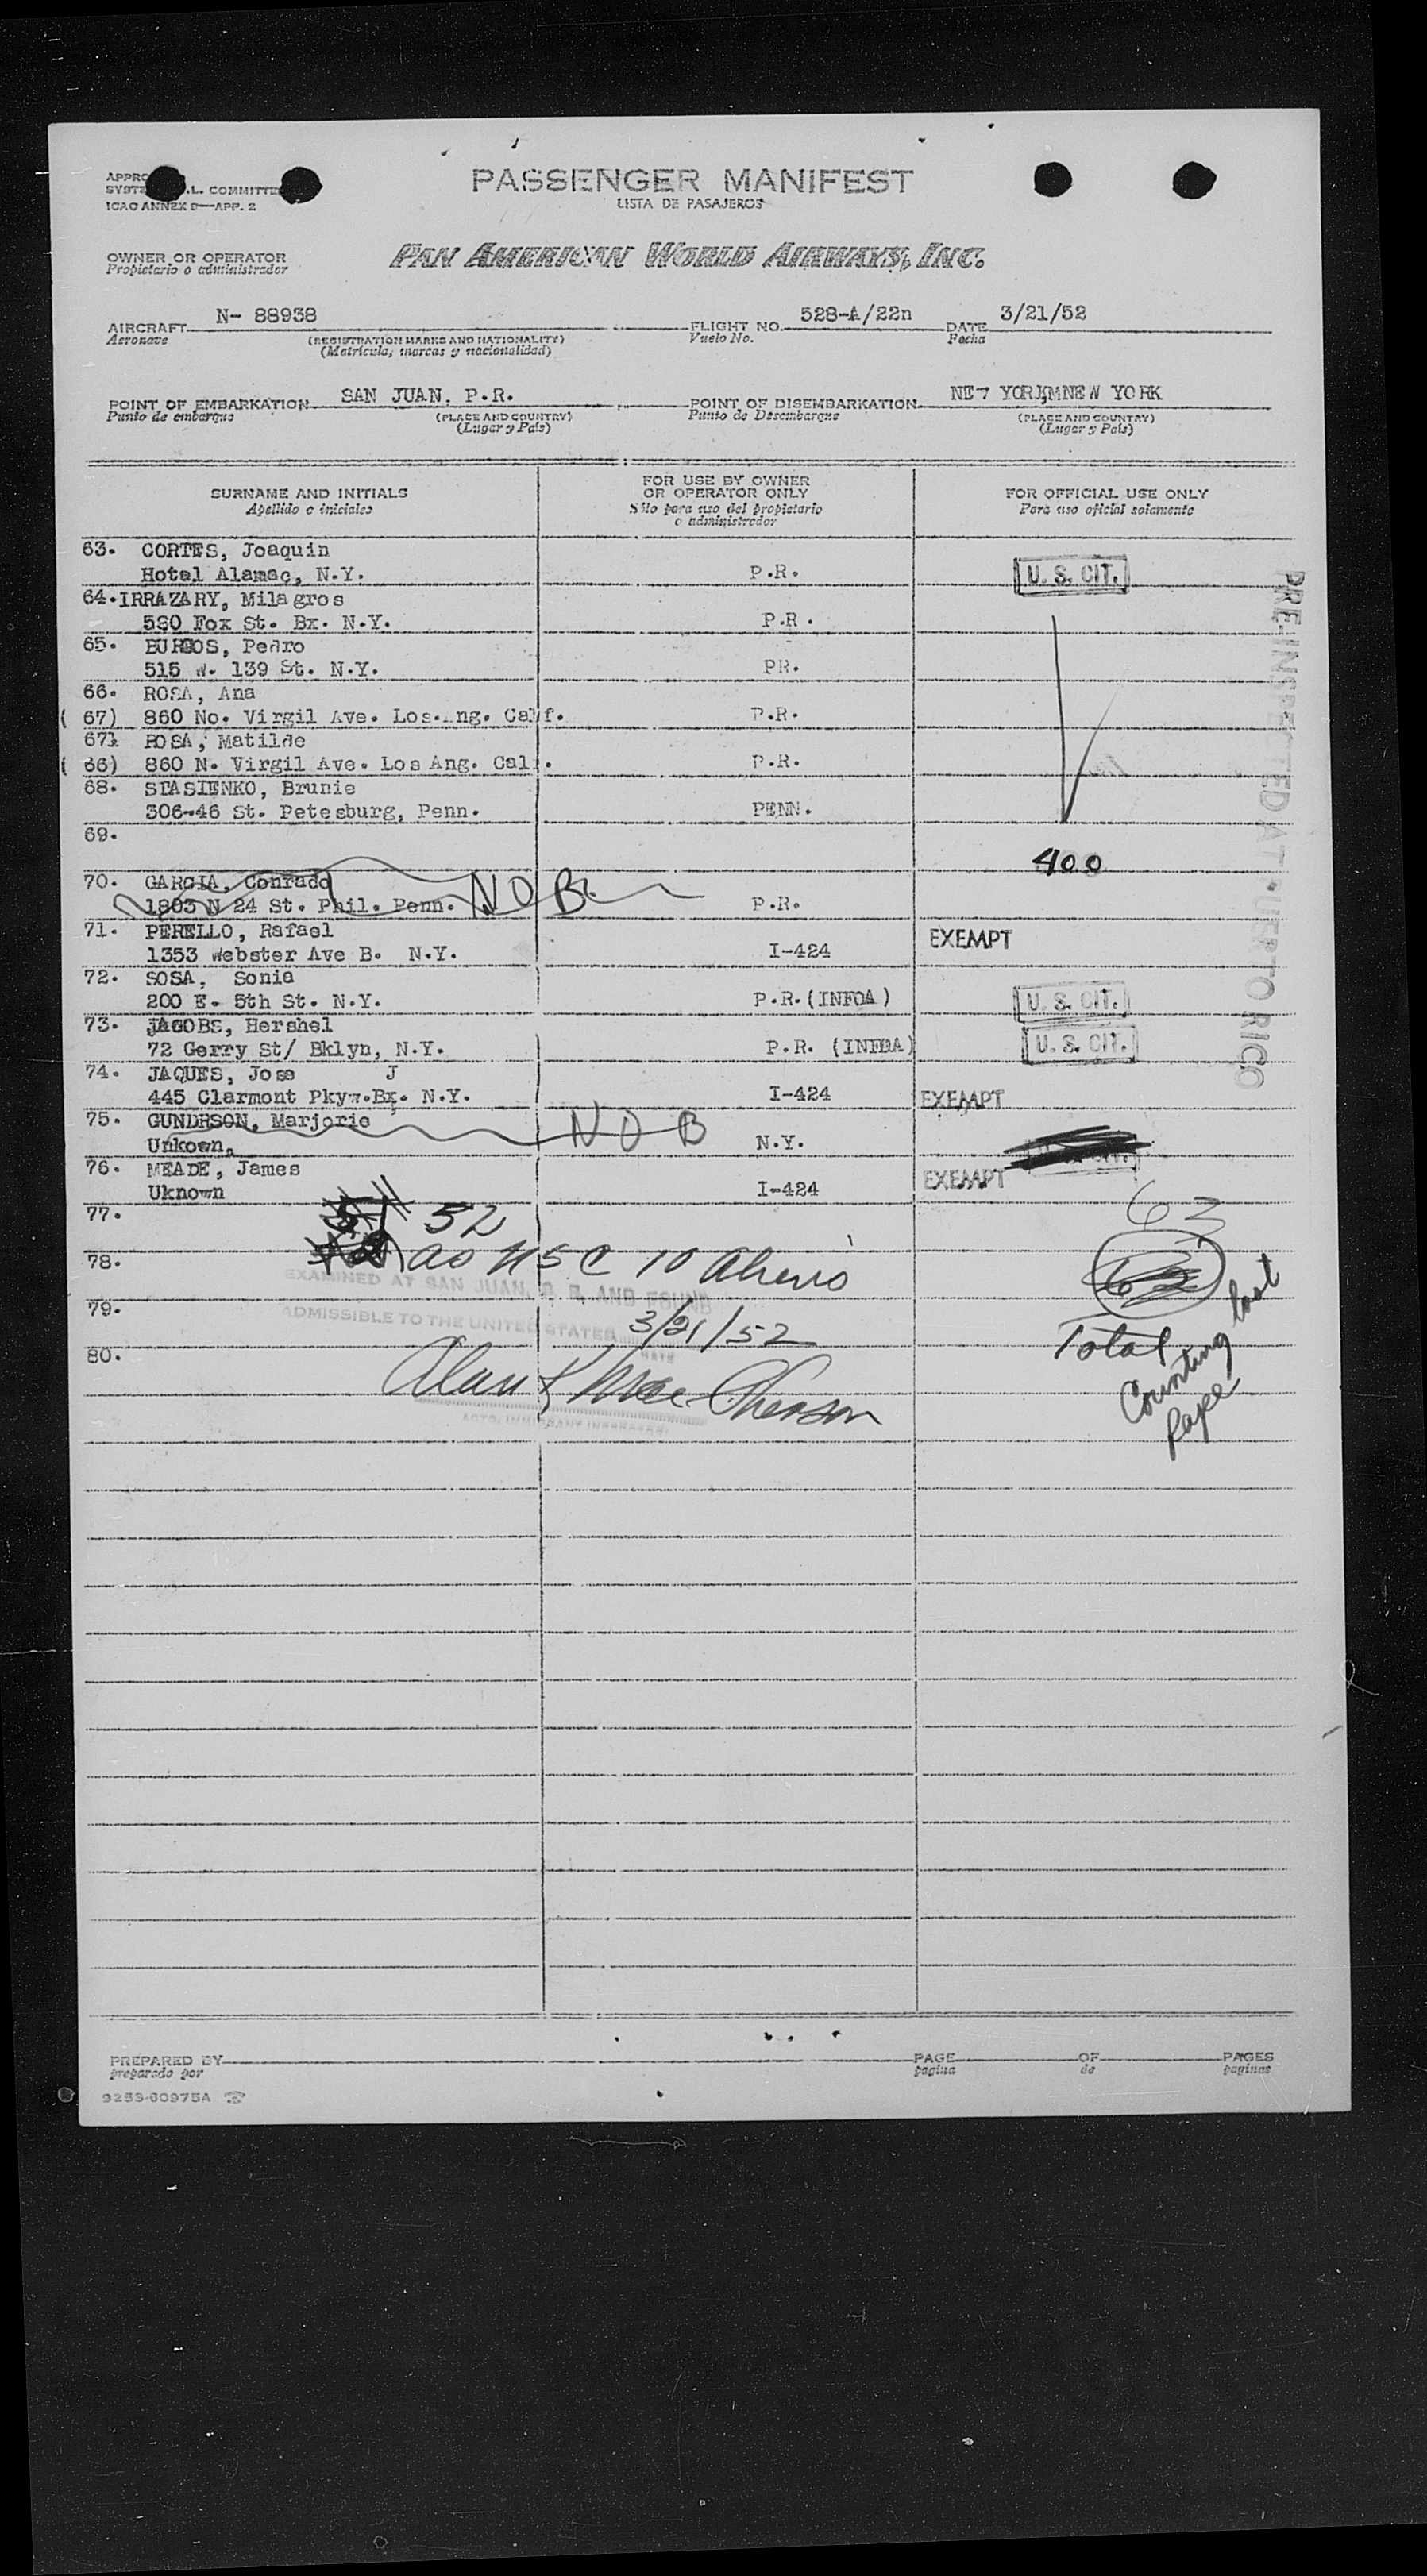 PASSENGER MANIFEST
LISTA DE PASAJEROS
ICAO ANNEX 9—APP. 2
OWNER OR OPERATOR
Propietario o administrador
PAN AMERICAN WORLD AIRWAYS, INC.
AIRCRAFT N- 88938 FLIGHT NO. 528-A/22n DATE 3/21/52
Aeronave (REGISTRATION MARKS AND NATIONALITY) Vuelo No. Fecha
(Matricula, marcas y nacionalidad)
POINT OF EMBARKATION SAN JUAN. P.R. POINT OF DISEMBARKATION NEW YORK,MNEW YORK
Punto de embarque (PLACE AND COUNTRY) Punto de Desembarque (PLACE AND COUNTRY)
(Lugar y País) (Lugar y País)
SURNAME AND INITIALS FOR USE BY OWNER OR OPERATOR ONLY FOR OFFICIAL USE ONLY
Apellido e iniciales Sólo para uso del propietario o administrador Para uso oficial solamente
63. CORTES, Joaquin
Hotel Alamac, N.Y. P.R. U. S. CIT.
64. IRRAZARY, Milagros
580 Fox St. Bx. N.Y. P.R.
65. BURGOS, Pedro
515 W. 139 St. N.Y. PR.
66. ROSA, Ana
( 67) 860 No. Virgil Ave. Los. ng. Calif. P.R.
67. ROSA, Matilde
( 66) 860 N. Virgil Ave. Los Ang. Cal. P.R.
68. STASIENKO, Brunie
306-46 St. Petesburg, Penn. PENN.
69.
400
70. GARCIA, Conrado NOB
1803 N 24 St. Phil. Penn. P.R.
71. PERELLO, Rafael EXEMPT
1353 Webster Ave B. N.Y. I-424
72. SOSA, Sonia
200 E. 5th St. N.Y. P.R.(INFOA) U. S. CIT.
73. JACOBS, Hershel
72 Gerry St/ Bklyn, N.Y. P.R. (INFOA) U. S. CIT.
74. JAQUES, Jose J
445 Clarmont Pkyw.Bx. N.Y. I-424 EXEMPT
75. GUNDRSON, Marjorie NOB
Unkown, N.Y.
76. MEADE, James EXEMPT
Uknown I-424
77. 51 52 63
78. USC 10 Aliens
EXAMINED AT SAN JUAN, P. R. AND FOUND
79. ADMISSIBLE TO THE UNITED STATES 3/21/52
DATE
Total Counting last page
80. Alan K MacPherson
PRE-INSPECTED AT PUERTO RICO
PREPARED BY PAGE OF PAGES
preparado por pagina de paginas
9253-60975A